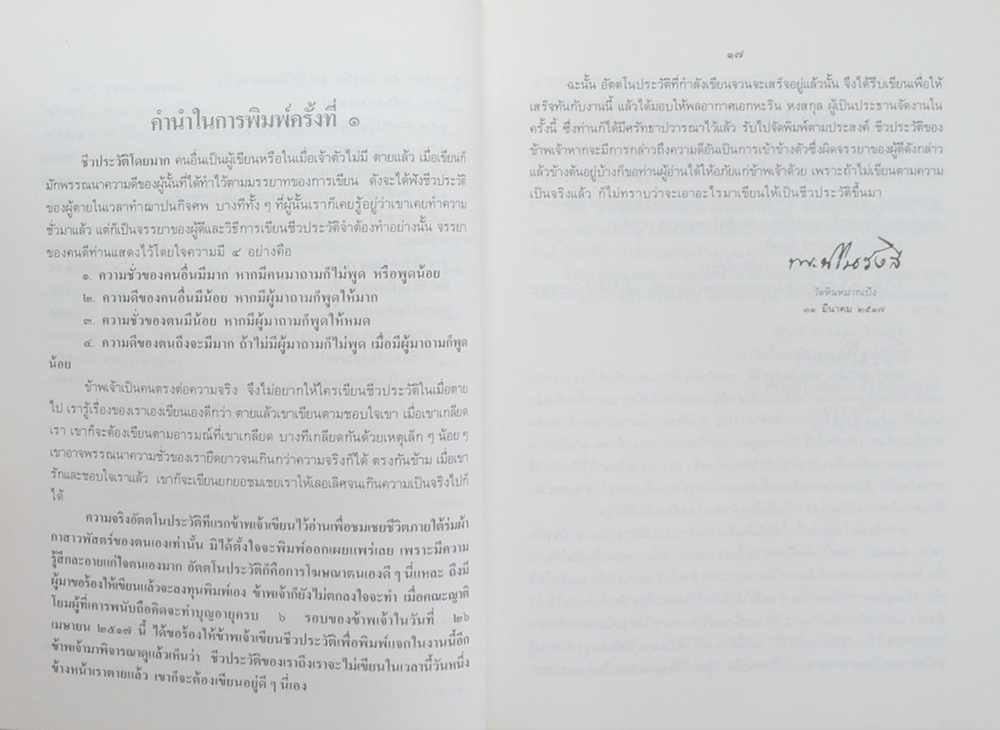 คำนำในการพิมพ์ครั้งที่ ๑
ชีวประวัติโดยมาก คนอื่นเป็นผู้เขียนหรือในเมื่อเจ้าตัวไม่มี ตายแล้ว เมื่อเขียนก็
มักพรรณนาความดีของผู้นั้นที่ได้ทำไว้ตามมรรยาทของการเขียน ดังจะได้ฟังชีวประวัติ
ของผู้ตายในเวลาทำฌาปนกิจศพ บางทีทั้ง ๆ ที่ผู้นั้นเราก็เคยรู้อยู่ว่าเขาเคยทำความ
ชั่วมาแล้ว แต่ก็เป็นจรรยาของผู้ดีและวิธีการเขียนชีวประวัติจำต้องทำอย่างนั้น จรรยา
ของคนดีท่านแสดงไว้โดยใจความมี ๔ อย่างคือ
๑. ความชั่วของคนอื่นมีมาก หากมีคนมาถามก็ไม่พูด หรือพูดน้อย
๒. ความดีของคนอื่นมีน้อย หากมีผู้มาถามก็พูดให้มาก
๓. ความชั่วของตนมีน้อย หากมีผู้มาถามก็พูดให้หมด
๔. ความดีของตนถึงจะมีมาก ถ้าไม่มีผู้มาถามก็ไม่พูด เมื่อมีผู้มาถามก็พูด
น้อย
ข้าพเจ้าเป็นคนตรงต่อความจริง จึงไม่อยากให้ใครเขียนชีวประวัติในเมื่อตาย
ไป เรารู้เรื่องของเราเองเขียนเองดีกว่า ตายแล้วเขาเขียนตามชอบใจเขา เมื่อเขาเกลียด
เรา เขาก็จะต้องเขียนตามอารมณ์ที่เขาเกลียด บางทีเกลียดกันด้วยเหตุเล็ก ๆ น้อย ๆ
เขาอาจพรรณนาความชั่วของเรายืดยาวจนเกินกว่าความจริงก็ได้ ตรงกันข้าม เมื่อเขา
รักและชอบใจเราแล้ว เขาก็จะเขียนยกยอชมเชยเราให้เลอเลิศจนเกินความเป็นจริงไปก็
ได้
ความจริงอัตตโนประวัติที่แรกข้าพเจ้าเขียนไว้อ่านเพื่อชมเชยชีวิตภายใต้ร่มผ้า
กาสาวพัสตร์ของตนเองเท่านั้น มิได้ตั้งใจจะพิมพ์ออกเผยแพร่เลย เพราะมีความ
รู้สึกละอายแก่ใจตนเองมาก อัตตโนประวัติก็คือการโฆษณาตนเองดี ๆ นี่แหละ ถึงมี
ผู้มาขอร้องให้เขียนแล้วจะลงทุนพิมพ์เอง ข้าพเจ้าก็ยังไม่ตกลงใจจะทำ เมื่อคณะญาติ
โยมผู้ที่เคารพนับถือคิดจะทำบุญอายุครบ ๖ รอบของข้าพเจ้าในวันที่ ๒๖
เมษายน ๒๕๑๗ นี้ ได้ขอร้องให้ข้าพเจ้าเขียนชีวประวัติเพื่อพิมพ์แจกในงานนี้อีก
ข้าพเจ้ามาพิจารณาดูแล้วเห็นว่า ชีวประวัติของเราถึงเราจะไม่เขียนในเวลานี้วันหนึ่ง
ข้างหน้าเราตายแล้ว เขาก็จะต้องเขียนอยู่ดี ๆ นี่เอง
๑๗
ฉะนั้น อัตตโนประวัติที่กำลังเขียนจวนจะเสร็จอยู่แล้วนั้น จึงได้รีบเขียนเพื่อให้
เสร็จทันกับงานนี้ แล้วได้มอบให้พลอากาศเอกหะริน หงสกุล ผู้เป็นประธานจัดงานใน
ครั้งนี้ ซึ่งท่านก็ได้มีศรัทธาปวารณาไว้แล้ว รับไปจัดพิมพ์ตามประสงค์ ชีวประวัติของ
ข้าพเจ้าหากจะมีการกล่าวถึงความดีอันเป็นการเข้าข้างตัวซึ่งผิดจรรยาของผู้ดีดังกล่าว
แล้วข้างต้นอยู่บ้างก็ขอท่านผู้อ่านได้ให้อภัยแก่ข้าพเจ้าด้วย เพราะถ้าไม่เขียนตามความ
เป็นจริงแล้ว ก็ไม่ทราบว่าจะเอาอะไรมาเขียนให้เป็นชีวประวัติขึ้นมา
วัดหินหมากเป้ง
๓๑ มีนาคม ๒๕๑๗